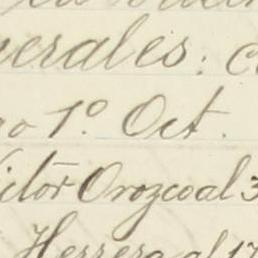 erales: C
no 1º Oct.
ictor Orozco al 3
Herrera al 17